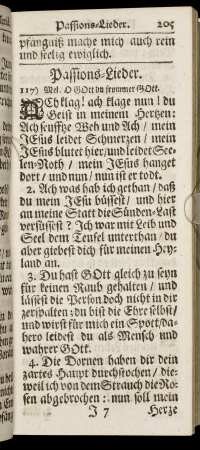 Passions-Lieder. 205
pfängniß mache mich auch rein
und seelig ewiglich.
Passions-Lieder.
117) Mel. O GOtt du frommer GOtt.
ACh klag! ach klage nun! du
Geist in meinem Hertzen:
Ach seuffze Weh und Ach / mein
JEsus leidet Schmertzen / mein
JEsus blutet hier / und leidet See-
len-Noth / mein JEsus hanget
dort / und nun / nun ist er todt.
2. Ach was hab ich gethan / daß
du mein JEsu büssest / und hier
an meine Statt die Sünden-Last
versüssest? Ich war mit Leib und
Seel dem Teufel unterthan / du
aber giebest dich für meinen Hey-
land an.
3. Du hast GOtt gleich zu seyn
für keinen Raub gehalten / und
lässest die Person doch nicht in dir
zerspalten: du bist die Ehr selbst /
und wirst für mich ein Spott / da-
hero leidest du als Mensch und
wahrer GOtt.
4. Die Dornen haben dir dein
zartes Haupt durchstochen / die-
weil ich von dem Strauch die Ro-
sen abgebrochen: nun soll mein
J 7 Hertze